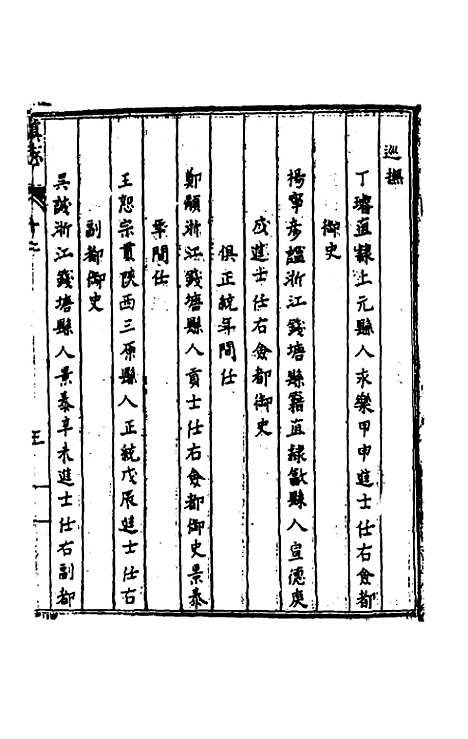 巡撫
丁璿直隸上元縣人永樂甲申進士仕右僉都
御史
楊寧彥謐浙江錢塘縣籍直隸歙縣人宣德庚
戌進士仕右僉都御史
俱正統年間任
鄭顒浙江錢塘縣人貢士仕右僉都御史景泰
年間任
王恕宗貫陝西三原縣人正統戊辰進士仕右
副都御史
吳誠浙江錢塘縣人景泰辛未進士仕右副都
滇志